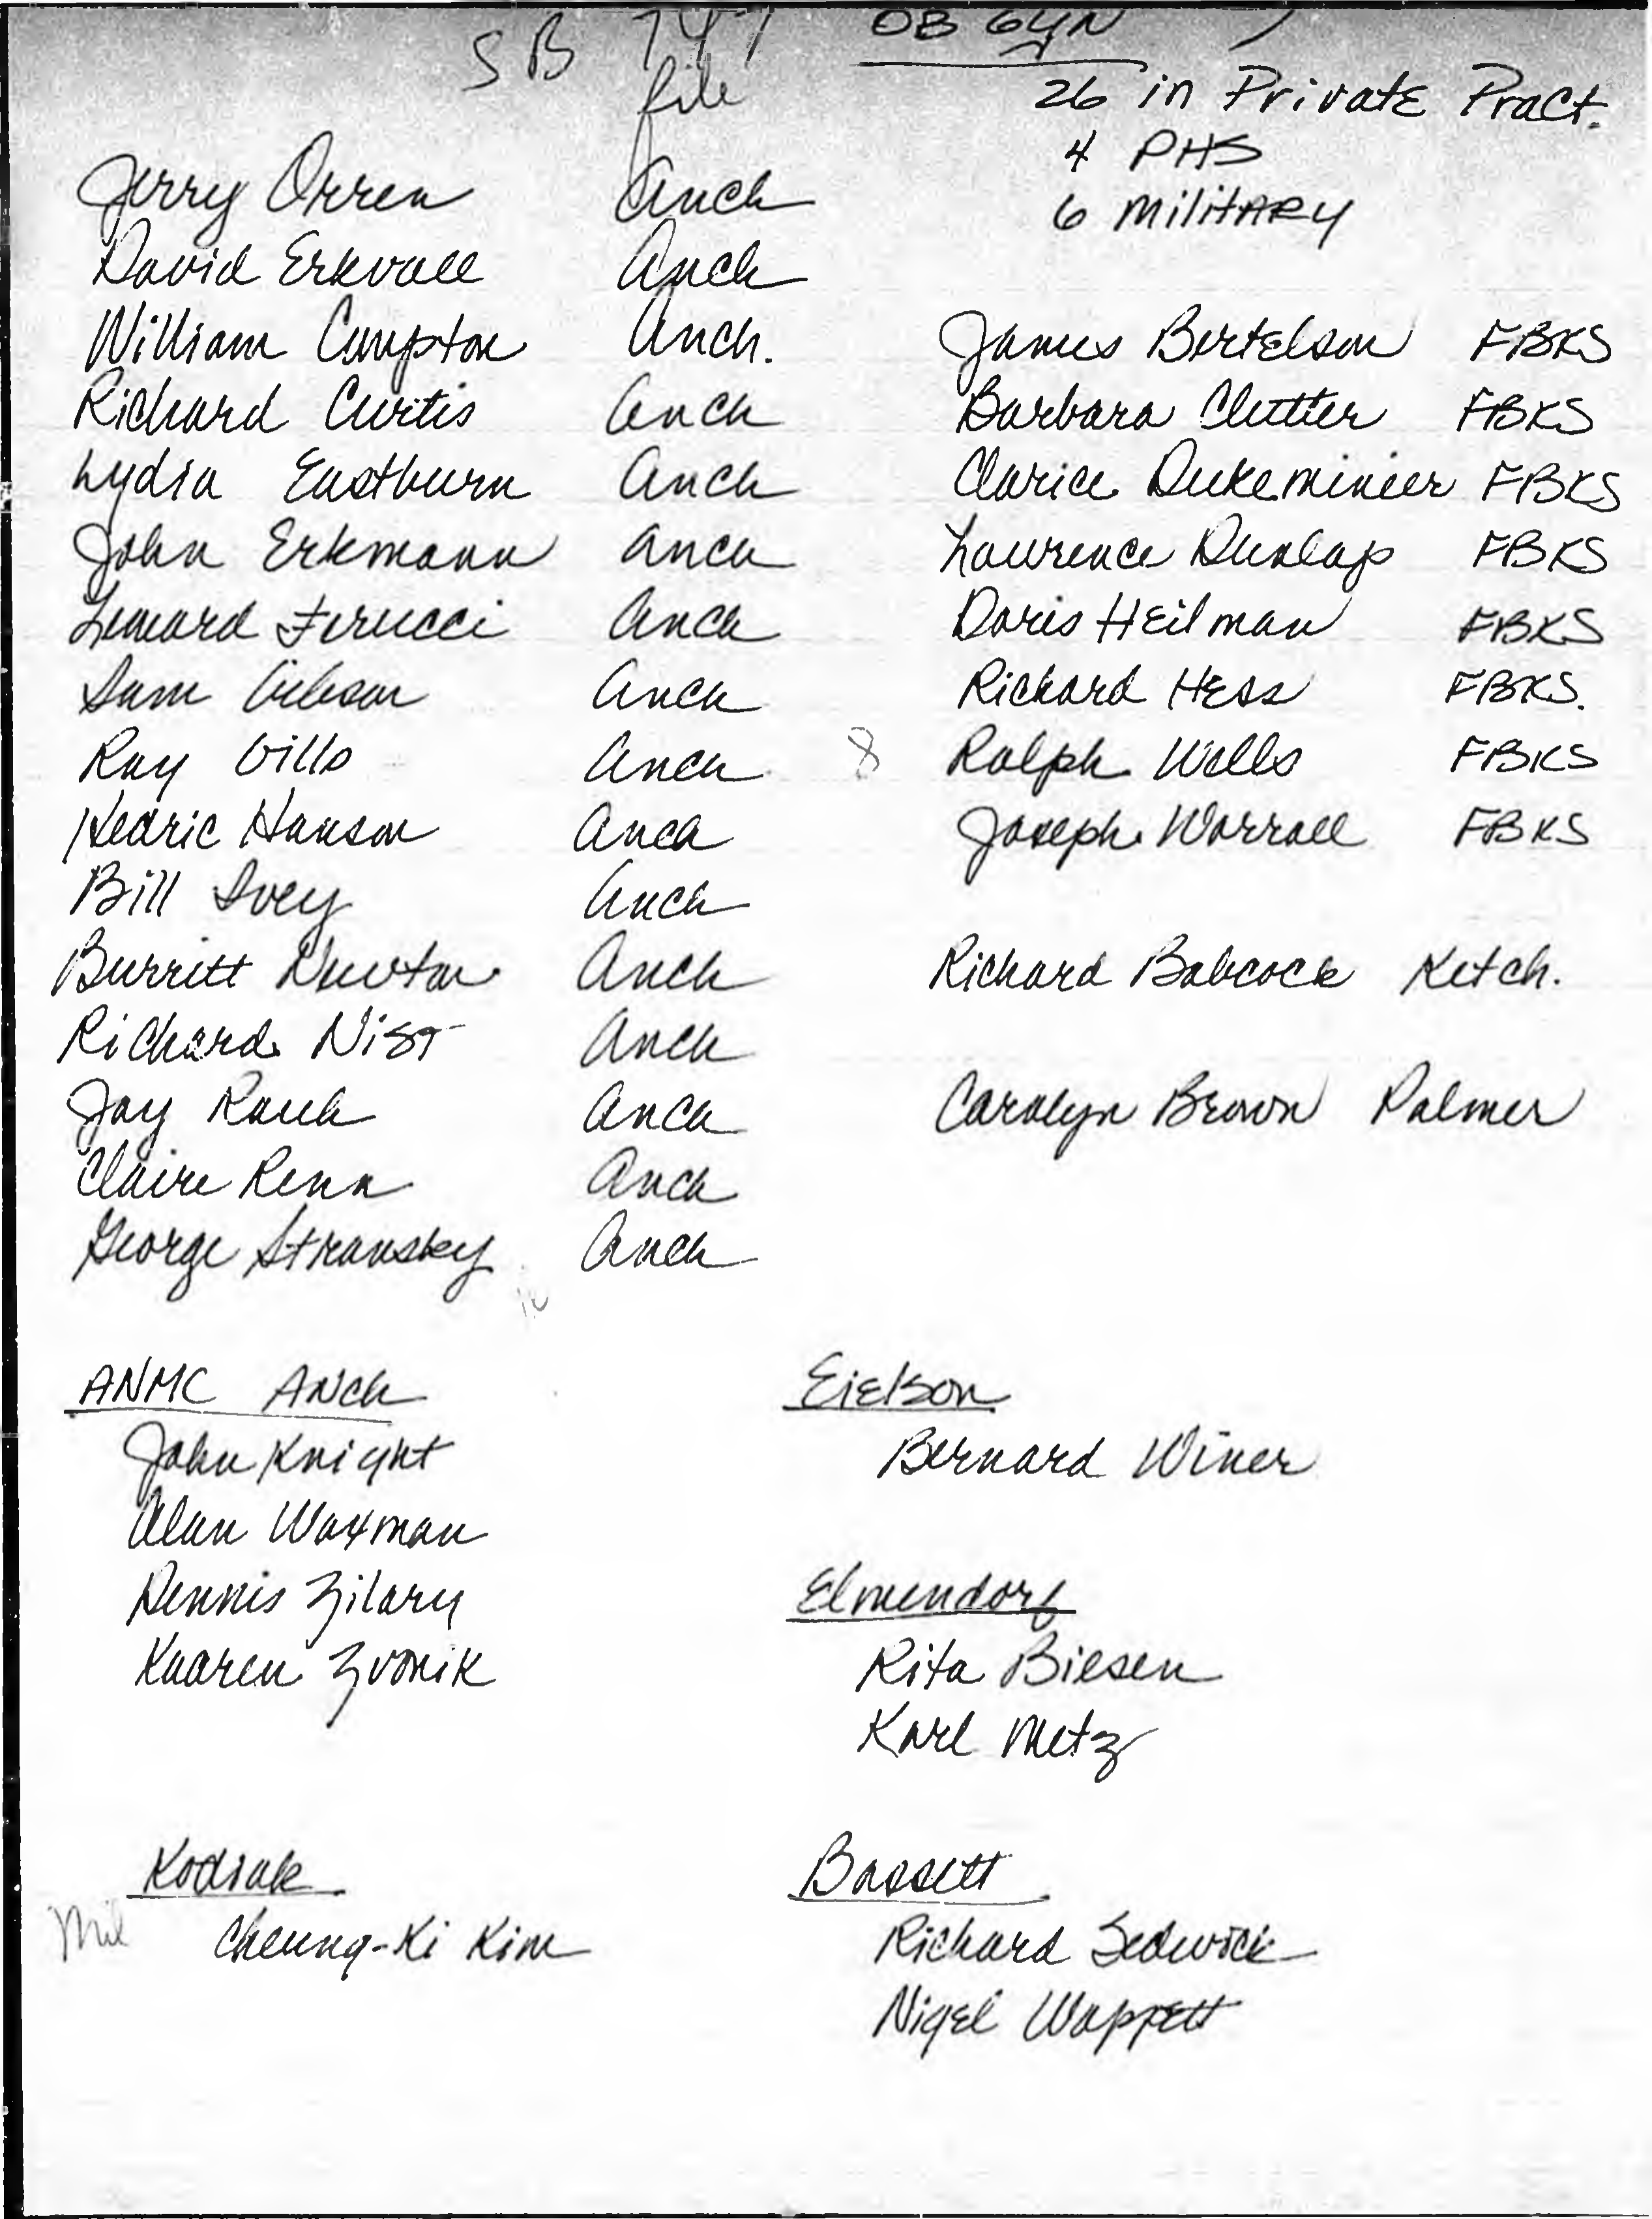 SB 747 OB GYN
file
26 in Private Pract.
4 PHS
6 Military
Jerry Orren Anch
David Erkvall Anch
William Compton Anch.
Richard Curtis Anch
Lydia Eastburn Anch
John Erkmann Anch
Leonard Ferucci Anch
Sam Gibson Anch
Ray Gills Anch
Hedric Hanson Anch
Bill Ivey Anch
Burritt Newton Anch
Richard Nist Anch
Jay Rauh Anch
Claire Renn Anch
George Stransky Anch
16
James Bertelson FBKS
Barbara Clutter FBKS
Clarice Dukeminier FBKS
Lawrence Dunlap FBKS
Doris Heilman FBKS
Richard Hess FBKS.
8 Ralph Wells FBKS
Joseph Worrall FBKS
Richard Babcock Ketch.
Carolyn Brown Palmer
ANMC Anch
John Knight
Alan Waxman
Dennis Zilary
Kaaren Zvonik
Kodiak
Mil Cheung-Ki Kim
Eielson
Bernard Winer
Elmendorf
Rita Biesen
Karl Metz
Bassett
Richard Sedwick
Nigel Wappett